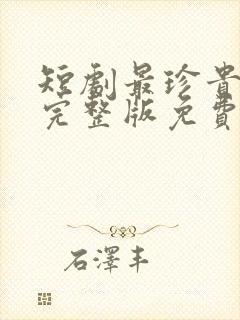 短劇最珍貴
完整版免費
石澤丰